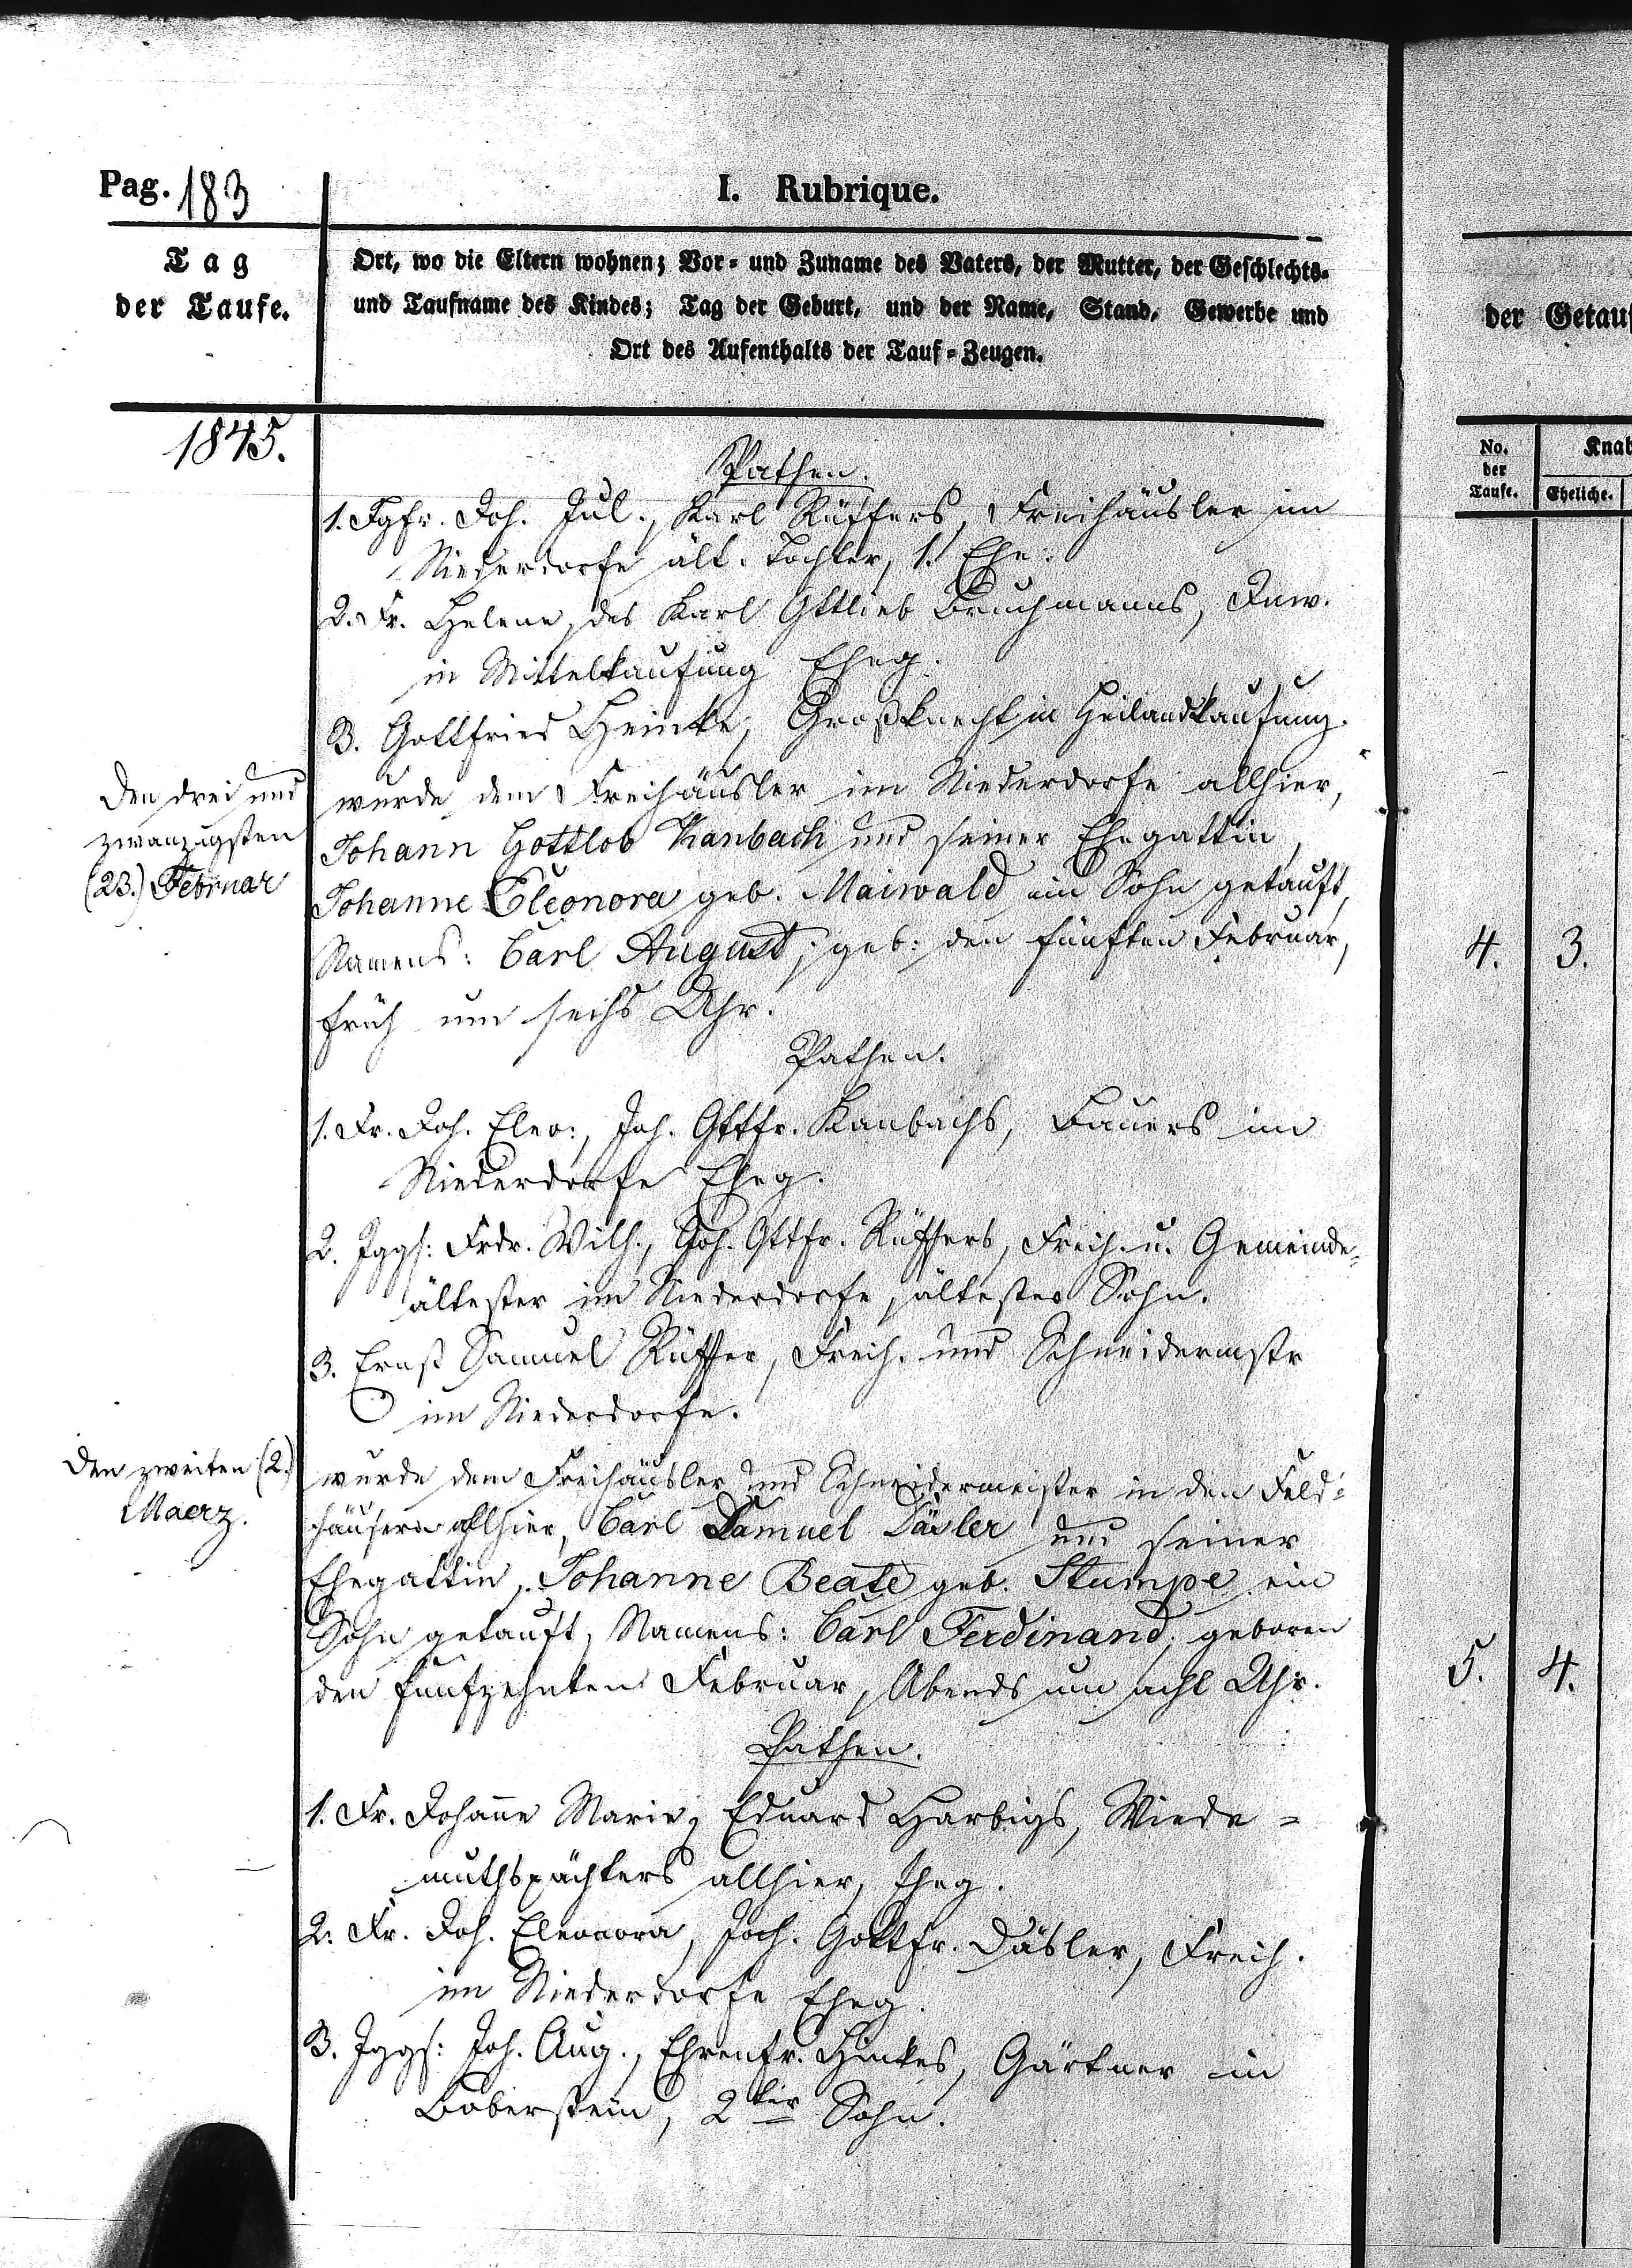 Pag. 183
I. Rubrique.
Tag
der Taufe.
Ort, wo die Eltern wohnen; Vor- und Zuname des Vaters, der Mutter, der Geschlechts-
und Taufname des Kindes; Tag der Geburt, und der Name, Stand, Gewerbe und
Ort des Aufenthalts der Tauf-Zeugen.
1845.
Pathen.
1. Jgfr. Joh. Jul., Karl Rüffers, Freihäusler im
Niederdorfe ält. Tochter, 1. Ehe.
2. Fr. Helene, des Karl Gttlieb Bruchmanns, Inw.
in Mittelkaufung Eheg.
3. Gottfried Heinke, Großknecht in Heilandkaufung.
Den drei und
zwanzigsten
(23.) Februar
wurde dem Freihäusler im Niederdorfe allhier,
Johann Gottlob Kanbach und seiner Ehegattin,
Johanne Eleonora geb. Maiwald ein Sohn getauft,
Namens: Carl August; geb: den fünften Februar,
früh um sechs Uhr.
Pathen.
1. Fr. Joh. Eleo:, Joh. Gttfr. Kanbachs, Bauers im
Niederdorfe Eheg.
2. Jggs: Frdr. Wilh., Joh. Gttfr. Rüffers, Freih. u. Gemeinde-
ältester im Niederdorfe, ältester Sohn.
3. Ernst Samuel Rüffer, Freih. und Schneidermstr
im Niederdorfe.
Den zweiten (2.)
Maerz.
wurde dem Freihäusler und Schneidermeister in den Feld-
häusern allhier, Carl Samuel Däsler und seiner
Ehegattin, Johanne Beate geb. Stumpe ein
Sohn getauft, Namens: Carl Ferdinand; geboren
den fünfzehnten Februar, Abends um acht Uhr.
Pathen.
1. Fr. Johañe Marie, Eduard Harbigs, Wiede-
muthspächters allhier, Eheg.
2. Fr. Joh. Eleonora, Joh. Gottfr. Däsler, Freih.
im Niederdorfe Eheg.
3. Jggs: Joh. Aug., Ehrenfr. Hinkes, Gärtner in
Boberstein, 2ter Sohn.
der Getauf
No.
der
Taufe.
Knab
Eheliche.
4. 3.
5. 4.